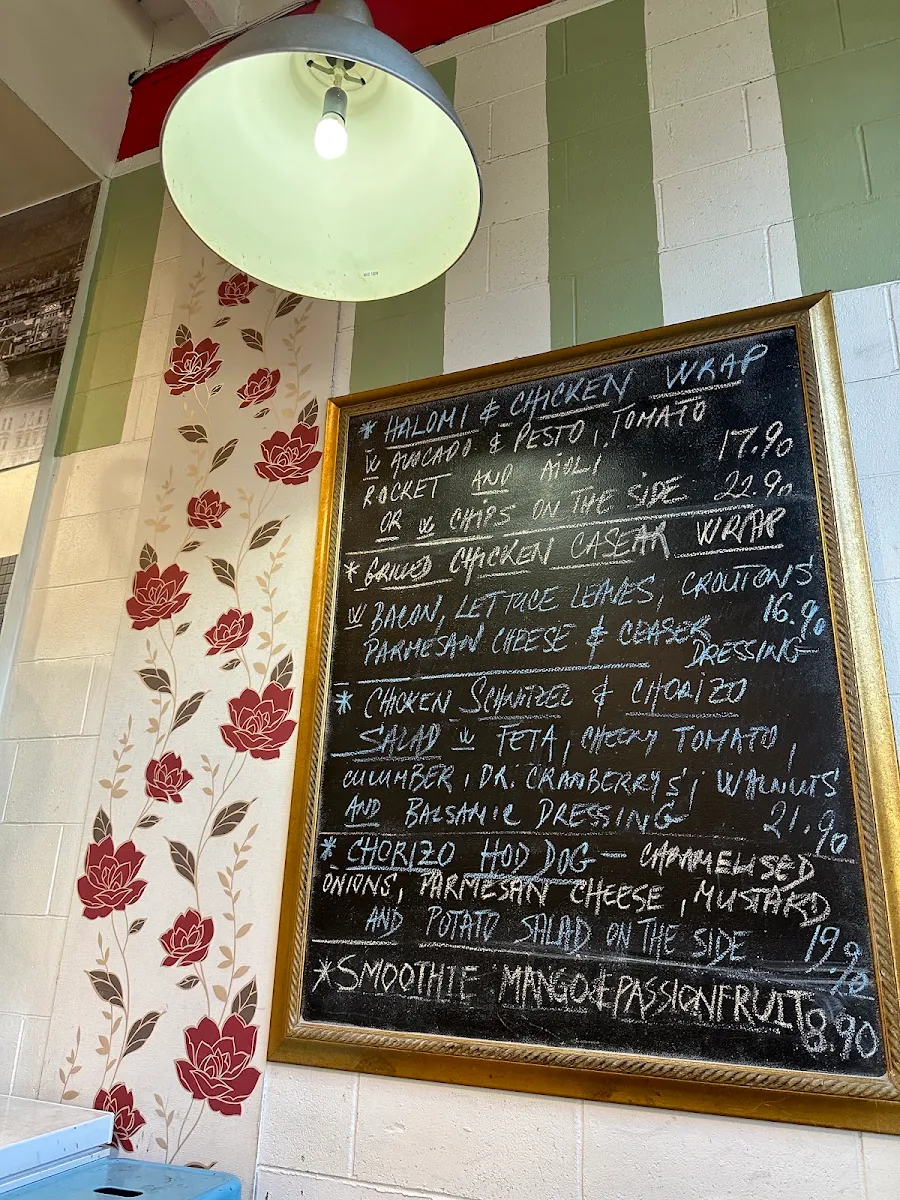 * HALOMI & CHICKEN WRAP
W AVOCADO & PESTO, TOMATO
ROCKET AND AIOLI 17.90
OR W CHIPS ON THE SIDE 22.90
* GRILLED CHICKEN CASEAR WRAP
W BACON, LETTUCE LEAVES, CROUTONS
PARMESAN CHEESE & CEASER 16.90
DRESSING
* CHICKEN SCHNITZEL & CHORIZO
SALAD W FETA, CHERRY TOMATO,
CUCUMBER, DR. CRANBERRYS, WALNUTS
AND BALSAMIC DRESSING 21.90
* CHORIZO HOD DOG - CARAMELISED
ONIONS, PARMESAN CHEESE, MUSTARD
AND POTATO SALAD ON THE SIDE 19.90
* SMOOTHIE MANGO & PASSIONFRUIT 8.90